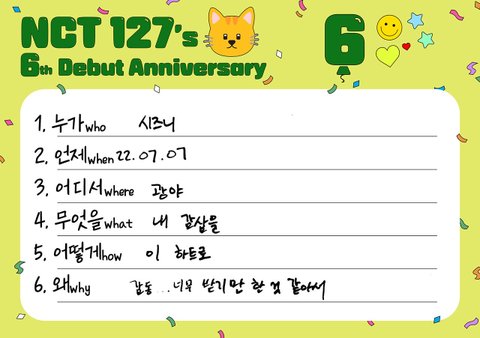 NCT 127's
6th Debut Anniversary
6
1. 누가who 시즈니
2. 언제when 22.07.07
3. 어디서where 광야
4. 무엇을what 내 감삼을
5. 어떻게how 이 하트로
6. 왜why 감동...너무 받기만 한 것 같아서